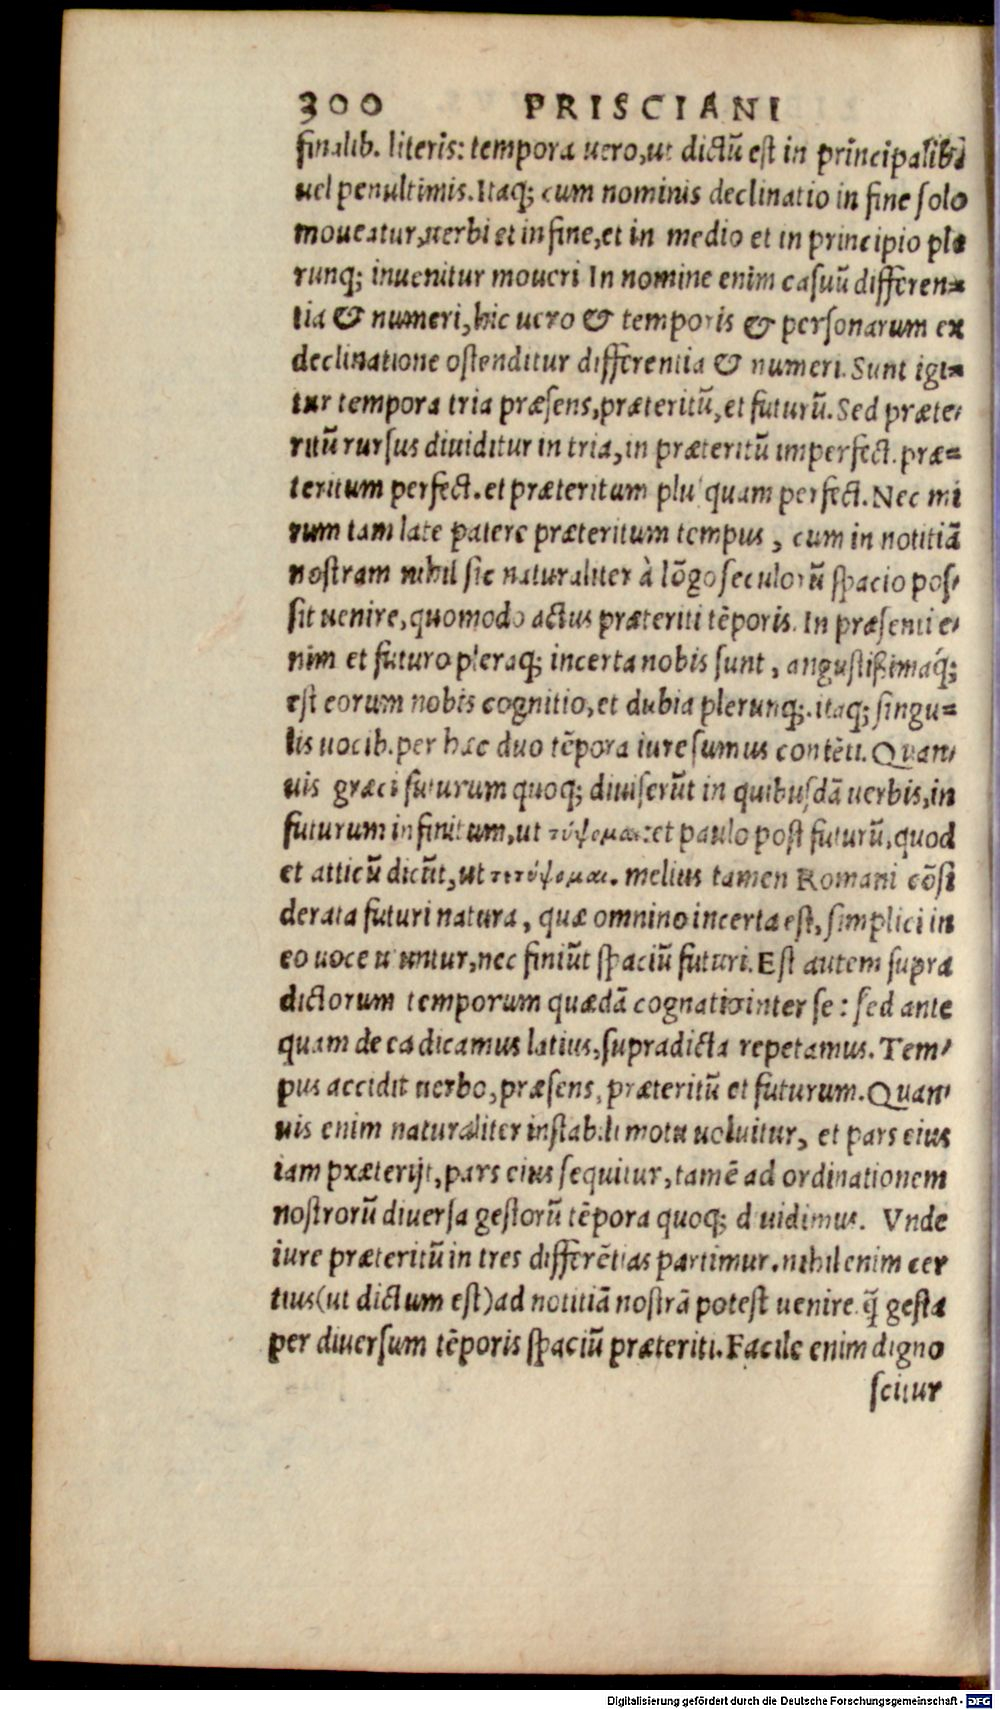 300 PRISCIANI
finalib. literis: tempora uero, ut dictū est in principalib.
uel penultimis. Itaq; cum nominis declinatio in fine solo
moueatur, uerbi et in fine, et in medio et in principio ple
runq; inuenitur moueri In nomine enim casuū differen=
tia & numeri, hic uero & temporis & personarum ex
declinatione ostenditur differentia & numeri. Sunt igi=
tur tempora tria præsens, præteritū, et futurū. Sed præte-
ritū rursus diuiditur in tria, in præteritū imperfect. præ=
teritum perfect. et præteritum plusquam perfect. Nec mi
rum tam late patere præteritum tempus, cum in notitiā
nostram nihil sic naturaliter à lōgo seculorū spacio pos-
sit uenire, quomodo actus præteriti tēporis. In præsenti e-
nim et futuro pleraq; incerta nobis sunt, angustißimaq́;
est eorum nobis cognitio, et dubia plerunq;. itaq; singu=
lis uocib. per hæc duo tēpora iure sumus contēti. Quan-
uis græci futurum quoq; diuiserūt in quibusdā uerbis, in
futurum infinitum, ut τύψομαι: et paulo post futurū, quod
et atticū dicūt, ut τετύψομαι. melius tamen Romani cōsi
derata futuri natura, quæ omnino incerta est, simplici in
eo uoce utuntur, nec finiūt spaciū futuri. Est autem supra
dictorum temporum quædā cognatio inter se: sed ante
quam de ea dicamus latius, supradicta repetamus. Tem-
pus accidit uerbo, præsens, præteritū et futurum. Quan-
uis enim naturaliter instabili motu uoluitur, et pars eius
iam præterijt, pars eius sequitur, tamē ad ordinationem
nostrorū diuersa gestorū tēpora quoq; diuidimus. Vnde
iure præteritū in tres differētias partimur. nihil enim cer
tius (ut dictum est) ad notitiā nostrā potest uenire q̄ gesta
per diuersum tēporis spaciū præteriti. Facile enim digno
scitur
Digitalisierung gefördert durch die Deutsche Forschungsgemeinschaft - DFG